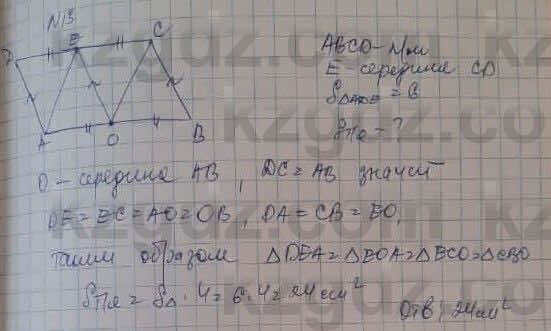 N13
D E C
A O B
ABCD - п/м
E - середина CD
S△ADE = 6
Sпа - ?
O - середина AB, DC = AB значит
DE = EC = AO = OB, DA = CB = EO,
таким образом △DEA = △EOA = △ECO = △CBO
Sпа = S△ · 4 = 6 · 4 = 24 см²
Отв: 24 см²
kzguz.com